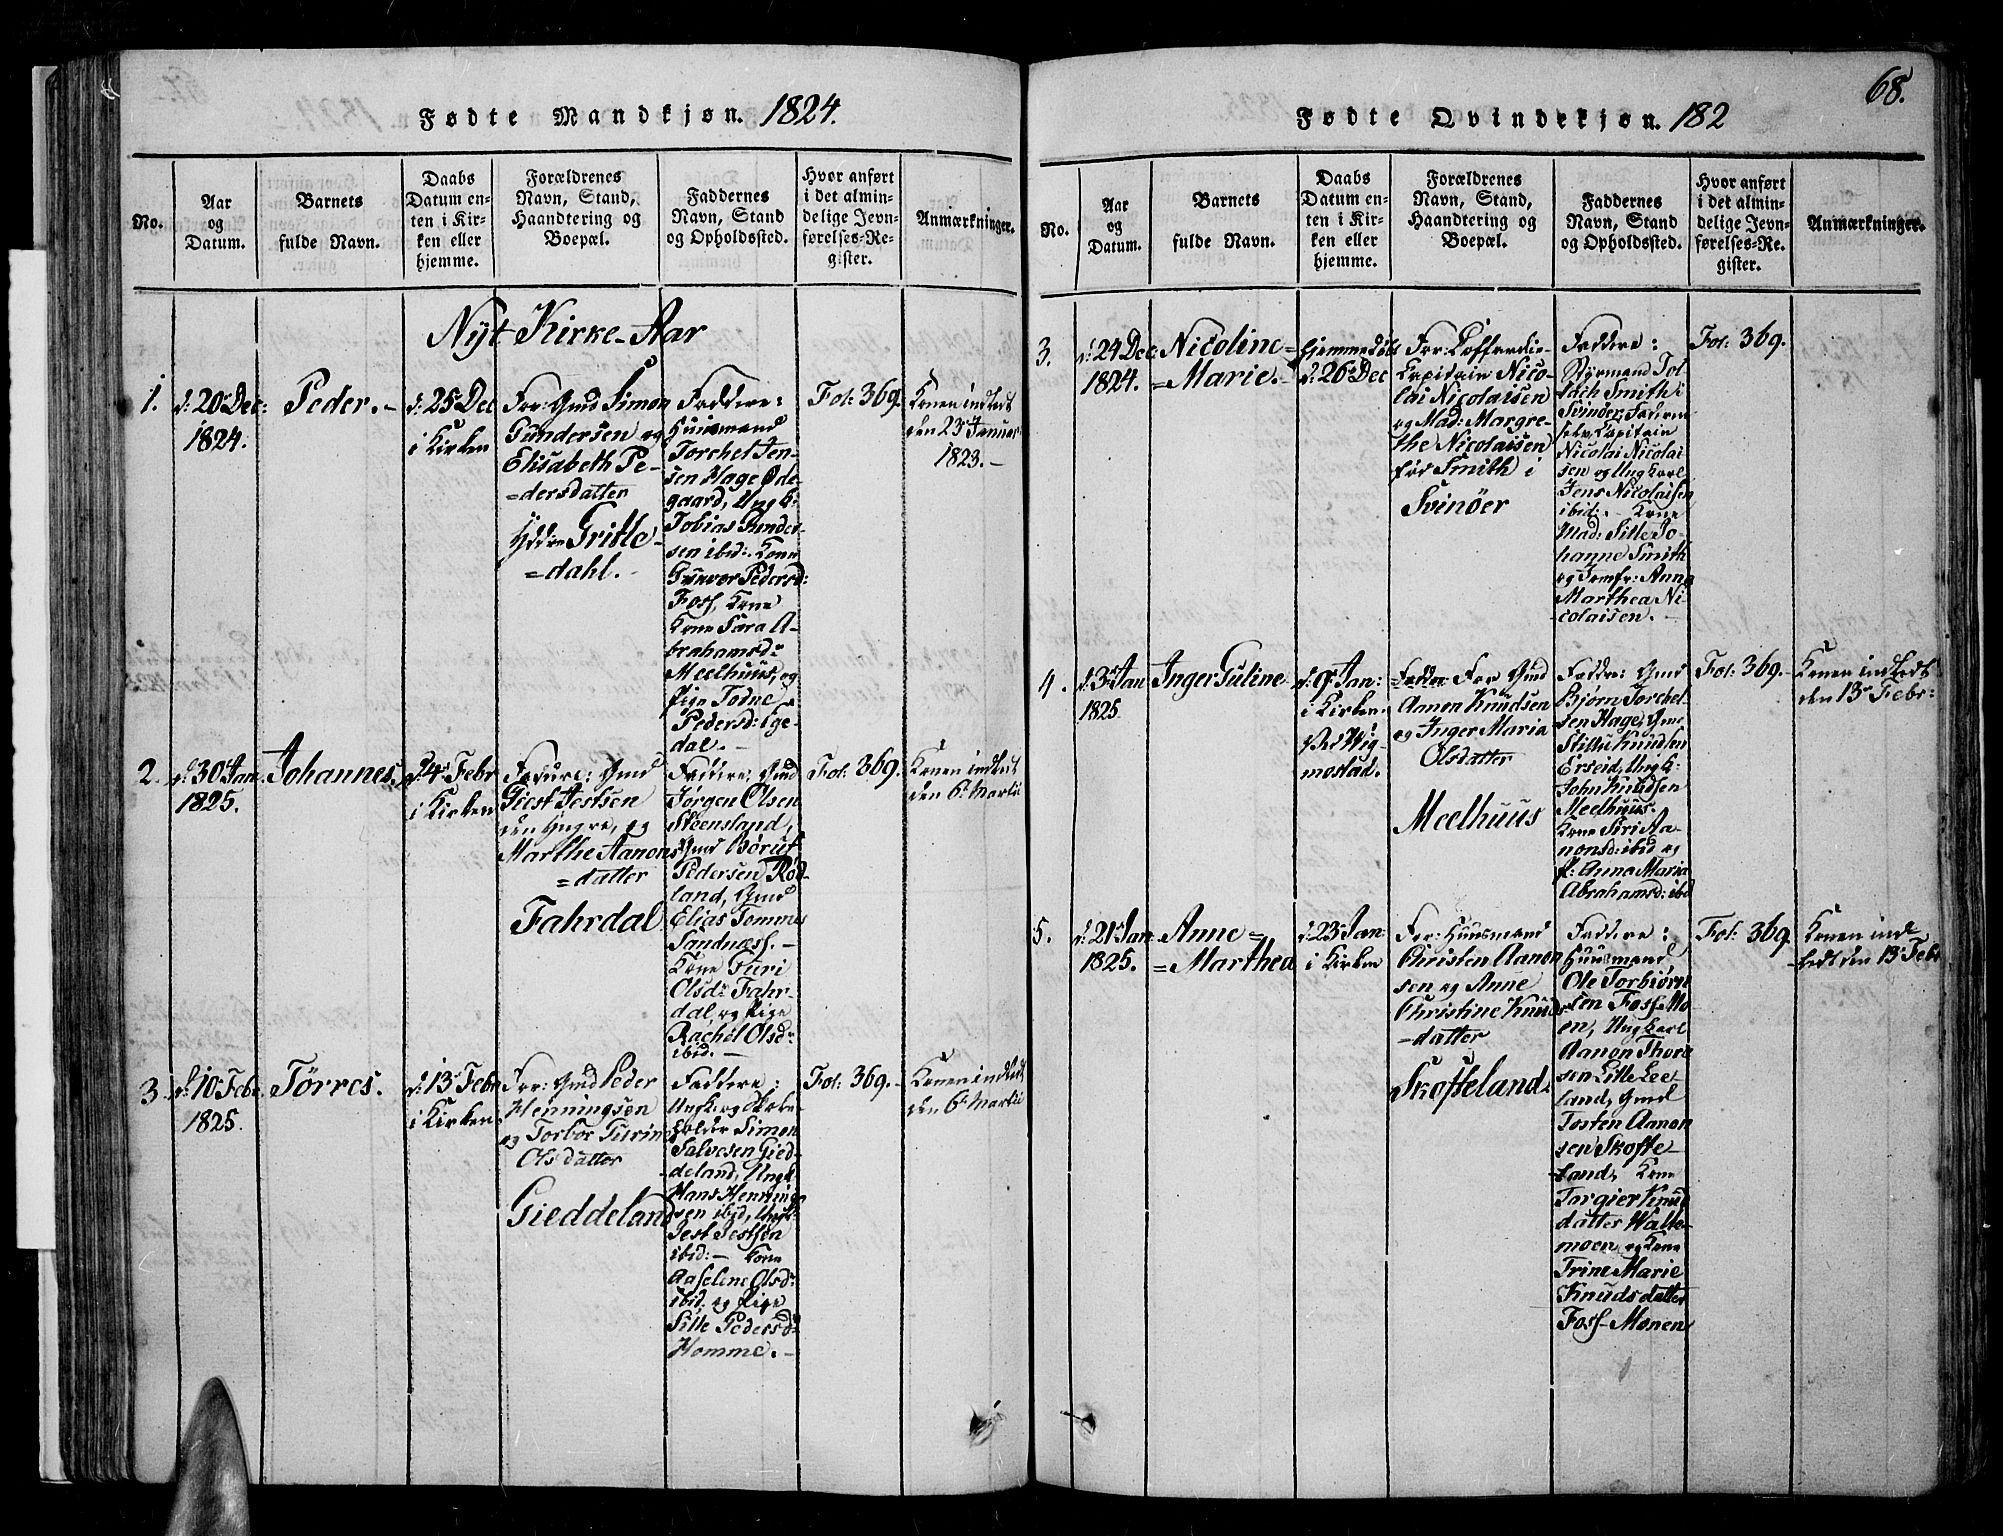 Fødte Mandkjøn. 1824.
No.
Aar
og
Datum.
Barnets
fulde Navn.
Daabs
Datum en-
ten i Kir-
ken eller
hjemme.
Forældrenes
Navn, Stand,
Haandtering og
Boepæl.
Faddernes
Navn, Stand
og Opholdssted.
Hvor anført
i det almin-
delige Jevn-
førelses-Re-
gister.
Anmærkninger.
Nÿt Kirke-Aar
1.
d: 20 Dec:
1824.
Peder.
d: 25 Dec
i Kirken
For: Gmd Simon
Gundersen og
Elisabeth Pe-
=dersdatter
Ydre Gritle-
=dahl.
Faddere:
Huusmand
Torchel Jen-
sen Hage Øde-
gaard, Ung k:
Tobias Gunder-
sen ibid: Kone
Gunvor Pedersd:
Foss, Kone
Kone Sara A-
brahamsd:
Meelhuus, og
Pige Todne
Pedersd: Ege-
dal.
Fol: 369.
Konen indledt
den 23 Januar
1823.
2.
d: 30 Jan
1825.
Johannes.
d: 4 Febr
i Kirken
Fadere: Gmd
Giest Jestsen
den Yngre, og
Marthe Aanons
=datter
Fahrdal
Faddere: Gmd
Jørgen Olsen
Steensland,
Gmd Børuf
Pedersen Rød-
land, Gmd
Elias Tommes
Sandnæss.
Kone Guri
Olsd: Fahr-
dal, og Pige
Rachel Olsd:
ibid.
Fol: 369.
Konen indledt
den 6 Martii
3.
d: 10 Febr
1825.
Tørres.
d: 13 Febr
i Kirken
For: Gmd Peder
Henningsen
og Torbor Gurine
Olsdatter
Gieddeland
Faddere:
Ungkarl og Kirke-
sølder Simon
Salvesen Gied-
deland, Ungk
Hans Henning-
sen ibid, Ungk
Jest Jestsen
ibid: Kone
Aaseline Olsd:
ibid. og Pige
Sille Pedersd
Homme.
Fol: 369.
Konen indledt
den 6 Martii
68.
Fødte Qvindekjøn. 182
No.
Aar
og
Datum.
Barnets
fulde Navn.
Daabs
Datum en-
ten i Kir-
ken eller
hjemme.
Forældrenes
Navn, Stand,
Haandtering og
Boepæl.
Faddernes
Navn, Stand
og Opholdssted.
Hvor anført
i det almin-
delige Jevn-
førelses-Re-
gister.
Anmærkninger.
3.
d: 24 Dec
1824.
Nicoline=
=Marie.
Hjemmedøbt
d: 26 Dec
For: Cofferdie-
Capitain Nico-
lai Nicolaisen
og Mad: Margre-
the Nicolaisen
fød Smith i
Svinöer
Faddere:
Styrmand
Smith i
Svinöer, Faderen
selv Capitain
Nicolai Nicolai-
sen og Ungkarl
Jens Nicolaisen
ibid: Kone
Mad: Sille Jo-
hanne Smith
og Jomfr: Anna
Marthea Ni-
colaisen.
Fol: 369.
4.
d: 3 Jan
1825
Inger Guline
d: 9 Jan:
i Kirken
Ved Wig-
mostad.
For Gmd
Aanen Knudsen
og Inger Maria
Olsdatter
Meelhuus
Faddere: Gmd
Bjørn Torchel-
sen Hage, Gmd
Knudsen
Erseid, Ungk:
John Knudsen
Meelhuus.
Kone Siri Aa-
nonsd: ibid og
P: Anna Maria
Abrahamsd: ibid
Fol: 369.
Konen indledt
den 13 Febr:
5.
d: 21 Jan
1825.
Anne=
=Marthea
d: 23 Jan
i Kirken
For: Huusmand
Christen Aanon
sen og Anne
Christine Knuds
=datter
Skofteland.
Faddere:
Huusmand
Ole Torbiørn
sen Foss-Mo-
en, Ungkarl
Aanon Thore
sen Lille Lee-
land, Gmd
Tosten Aanon
sen Skofte-
land, Kone
Torgier Knud
datter Walle-
moen, og Kone
Trine Marie
Knudsdatter
Foss-Monen
Fol: 369.
Konen ind-
ledt den 13 Febr